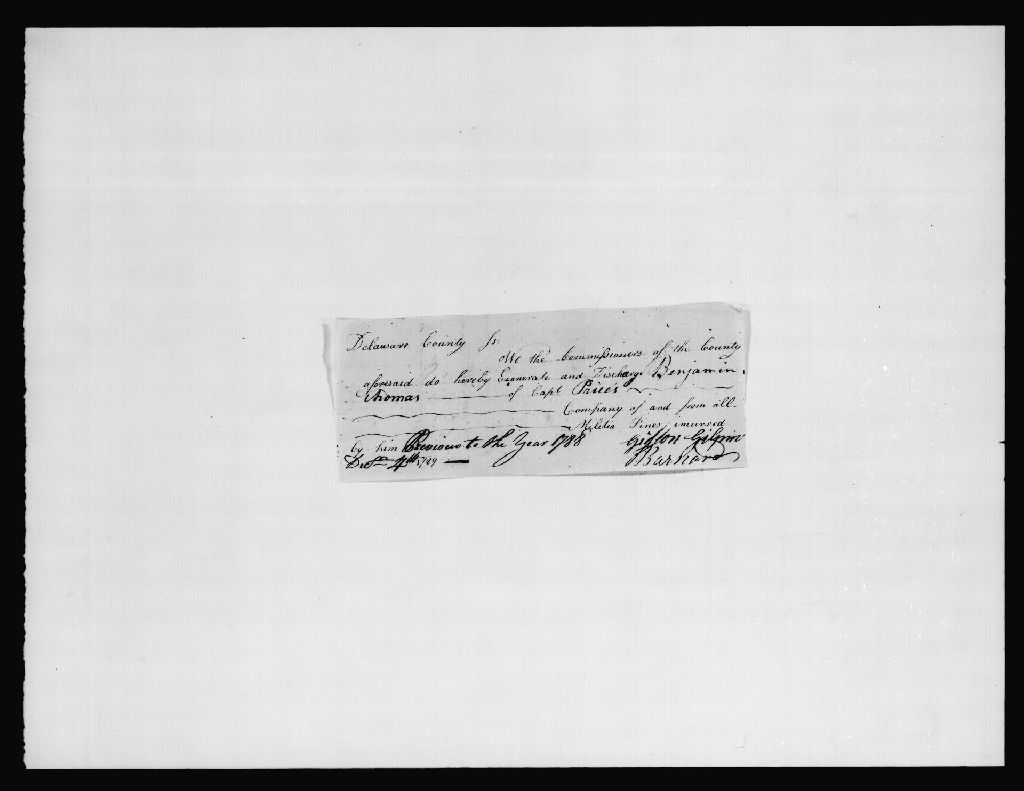 Delaware County ss
We the Commissioners of the County
aforesaid do hereby Exonerate and Discharge Benjamin
Thomas of Capt Price's
Company of and from all
Militia Fines incurred
by him Previous to the Year 1788 Gideon Gilpin
Decr 4th 1789 Barnard